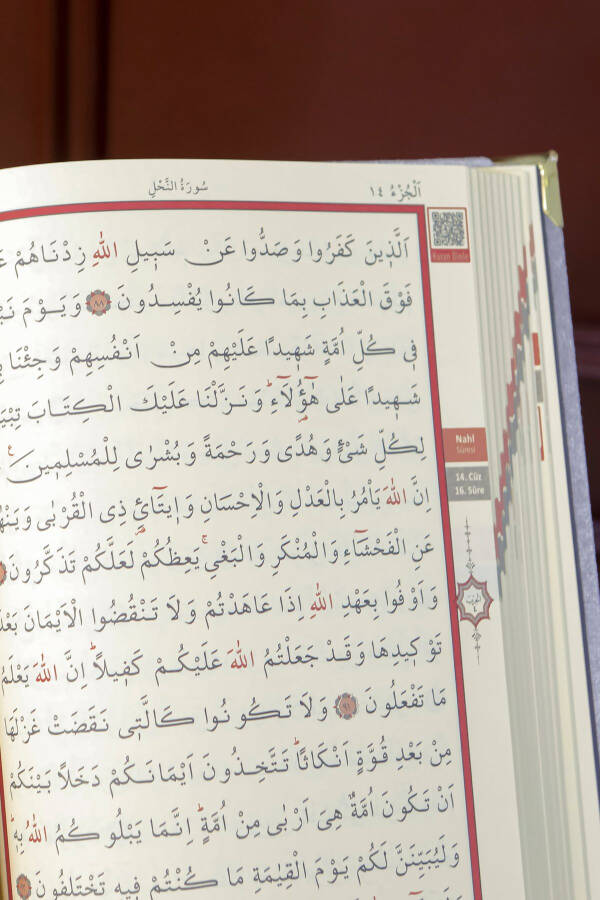 سُورَةُ النَّحْلِ
اَلْجُزْءُ ١٤
اَلَّذٖينَ كَفَرُوا وَصَدُّوا عَنْ سَبٖيلِ اللّٰهِ زِدْنَاهُمْ
فَوْقَ الْعَذَابِ بِمَا كَانُوا يُفْسِدُونَ ٨٨ وَيَوْمَ
فٖى كُلِّ اُمَّةٍ شَهٖيدًا عَلَيْهِمْ مِنْ اَنْفُسِهِمْ وَجِئْنَا
شَهٖيدًا عَلٰى هٰٓؤُ۬لَٓاءِؕ وَنَزَّلْنَا عَلَيْكَ الْكِتَابَ
لِكُلِّ شَیْءٍ وَهُدًى وَرَحْمَةً وَبُشْرٰى لِلْمُسْلِمٖينَ
اِنَّ اللّٰهَ يَأْمُرُ بِالْعَدْلِ وَالْاِحْسَانِ وَاٖيتَٓائِ ذِى الْقُرْبٰى
عَنِ الْفَحْشَٓاءِ وَالْمُنْكَرِ وَالْبَغْىِۚ يَعِظُكُمْ لَعَلَّكُمْ تَذَكَّرُونَ
وَاَوْفُوا بِعَهْدِ اللّٰهِ اِذَا عَاهَدْتُمْ وَلَا تَنْقُضُوا الْاَيْمَانَ
تَوْكٖيدِهَا وَقَدْ جَعَلْتُمُ اللّٰهَ عَلَيْكُمْ كَفٖيلًاؕ اِنَّ اللّٰهَ يَعْلَمُ
مَا تَفْعَلُونَ ٩١ وَلَا تَكُونُوا كَالَّتٖى نَقَضَتْ غَزْلَهَا
مِنْ بَعْدِ قُوَّةٍ اَنْكَاثًاؕ تَتَّخِذُونَ اَيْمَانَكُمْ دَخَلًا بَيْنَكُمْ
اَنْ تَكُونَ اُمَّةٌ هِىَ اَرْبٰى مِنْ اُمَّةٍؕ اِنَّمَا يَبْلُوكُمُ اللّٰهُ بِهٖؕ
وَلَيُبَيِّنَنَّ لَكُمْ يَوْمَ الْقِيٰمَةِ مَا كُنْتُمْ فٖيهِ تَخْتَلِفُونَ
Nahl
Sûresi
14. Cüz
16. Sûre